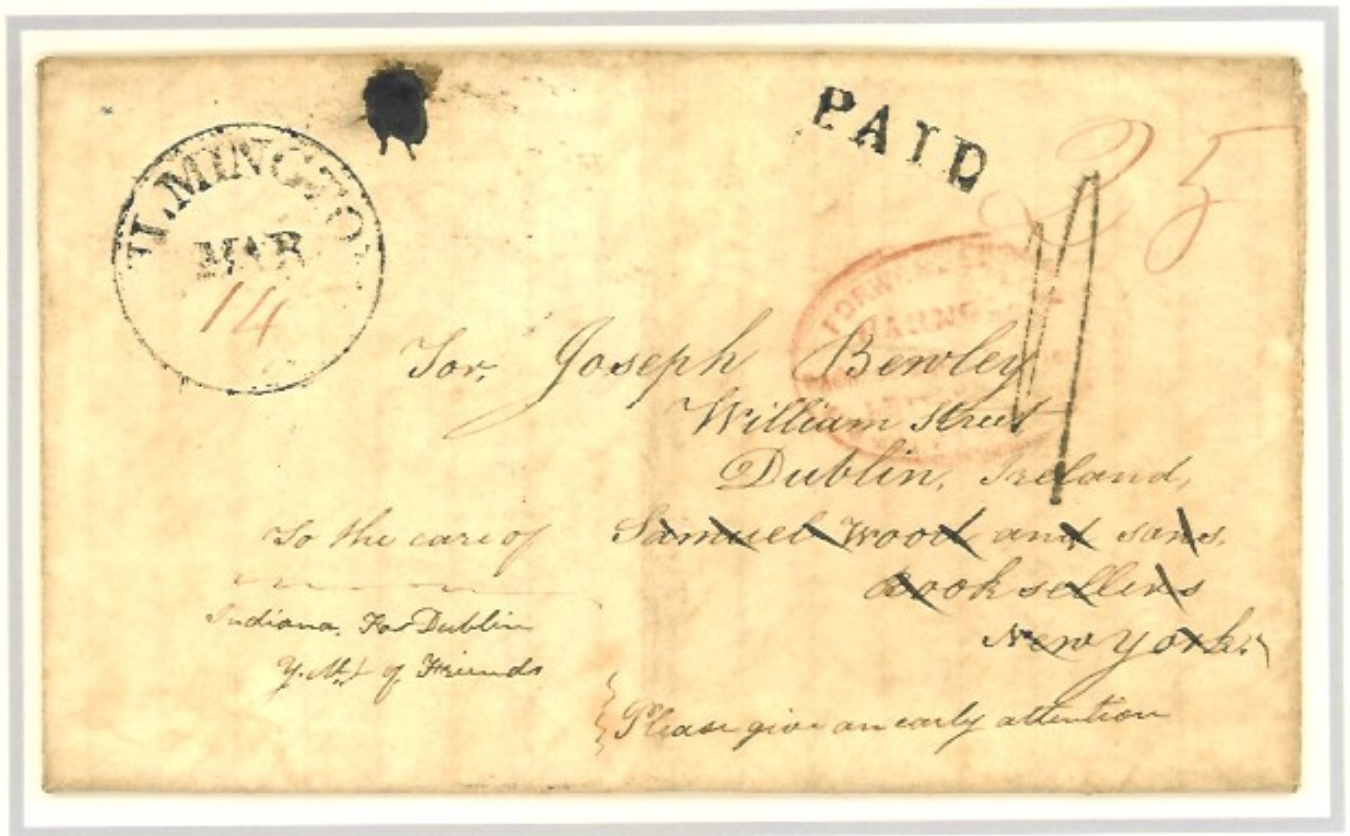 ILMINGTO
MAR
14
PAID
25
FORW
For Joseph Bewley
William Street
Dublin, Ireland,
To the care of Samuel Wood and sons,
Booksellers
New York.
Indiana, For Dublin
Y. Mt of Friends
Please give an early attention